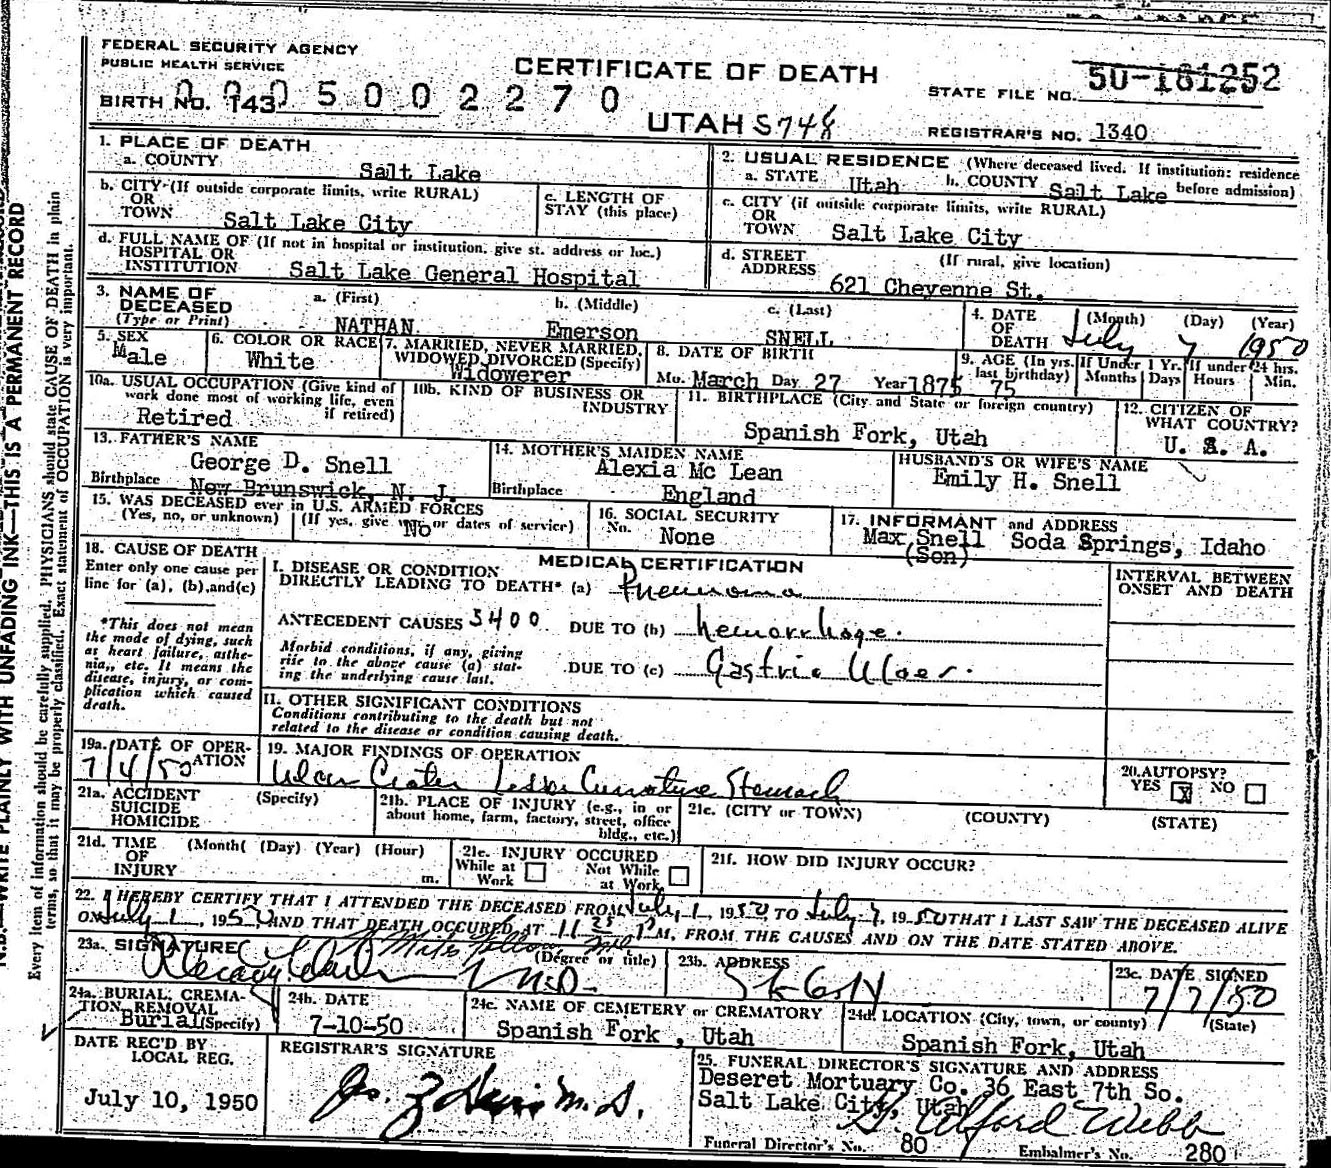 FEDERAL SECURITY AGENCY
PUBLIC HEALTH SERVICE
CERTIFICATE OF DEATH
STATE FILE NO. 50-181252
BIRTH NO. 143
0005002270
UTAH 5748
REGISTRAR'S NO. 1340
1. PLACE OF DEATH
a. COUNTY Salt Lake
b. CITY (If outside corporate limits, write RURAL)
OR
TOWN Salt Lake City
c. LENGTH OF
STAY (this place)
d. FULL NAME OF (If not in hospital or institution, give st. address or loc.)
HOSPITAL OR
INSTITUTION Salt Lake General Hospital
2. USUAL RESIDENCE (Where deceased lived. If institution: residence
a. STATE Utah b. COUNTY Salt Lake before admission)
c. CITY (if outside corporate limits, write RURAL)
OR
TOWN Salt Lake City
d. STREET (If rural, give location)
ADDRESS 621 Cheyenne St.
3. NAME OF
DECEASED
(Type or Print)
a. (First) b. (Middle) c. (Last)
NATHAN Emerson SNELL
4. DATE (Month) (Day) (Year)
OF
DEATH July 7 1950
5. SEX
Male
6. COLOR OR RACE
White
7. MARRIED, NEVER MARRIED,
WIDOWED, DIVORCED (Specify)
Widowerer
8. DATE OF BIRTH
Mo. March Day 27 Year 1875
9. AGE (In yrs.
last birthday) 75
If Under 1 Yr.
Months Days
If under 24 hrs.
Hours Min.
10a. USUAL OCCUPATION (Give kind of
work done most of working life, even
if retired)
Retired
10b. KIND OF BUSINESS OR
INDUSTRY
11. BIRTHPLACE (City and State or foreign country)
Spanish Fork, Utah
12. CITIZEN OF
WHAT COUNTRY?
U. S. A.
13. FATHER'S NAME
George D. Snell
Birthplace New Brunswick, N. J.
14. MOTHER'S MAIDEN NAME
Alexia Mc Lean
Birthplace England
HUSBAND'S OR WIFE'S NAME
Emily H. Snell
15. WAS DECEASED ever in U.S. ARMED FORCES
(Yes, no, or unknown) (If yes, give war or dates of service)
No
16. SOCIAL SECURITY
No. None
17. INFORMANT and ADDRESS
Max Snell Soda Springs, Idaho
(Son)
18. CAUSE OF DEATH
Enter only one cause per
line for (a), (b), and (c)
*This does not mean
the mode of dying, such
as heart failure, asthe-
nia, etc. It means the
disease, injury, or com-
plication which caused
death.
MEDICAL CERTIFICATION
I. DISEASE OR CONDITION
DIRECTLY LEADING TO DEATH* (a) Pneumonia
ANTECEDENT CAUSES 5400 DUE TO (b) hemorrhage.
Morbid conditions, if any, giving
rise to the above cause (a) stat-
ing the underlying cause last.
DUE TO (c) Gastric Ulcer.
II. OTHER SIGNIFICANT CONDITIONS
Conditions contributing to the death but not
related to the disease or condition causing death.
INTERVAL BETWEEN
ONSET AND DEATH
19a. DATE OF OPER-
ATION
7/4/50
19. MAJOR FINDINGS OF OPERATION
Ulcer Crater Lesser Curvature Stomach
20. AUTOPSY?
YES X NO
21a. ACCIDENT (Specify)
SUICIDE
HOMICIDE
21b. PLACE OF INJURY (e.g., in or
about home, farm, factory, street, office
bldg., etc.)
21c. (CITY or TOWN) (COUNTY) (STATE)
21d. TIME (Month( (Day) (Year) (Hour)
OF
INJURY m.
21e. INJURY OCCURED
While at Work Not While at Work
21f. HOW DID INJURY OCCUR?
22. I HEREBY CERTIFY THAT I ATTENDED THE DECEASED FROM July 1, 1950 TO July 7, 1950 THAT I LAST SAW THE DECEASED ALIVE
ON July 1, 1950, AND THAT DEATH OCCURED AT 11 25 P M, FROM THE CAUSES AND ON THE DATE STATED ABOVE.
23a. SIGNATURE (Degree or title)
M.D.
23b. ADDRESS
23c. DATE SIGNED
7/7/50
24a. BURIAL, CREMA-
TION, REMOVAL
Burial (Specify)
24b. DATE
7-10-50
24c. NAME OF CEMETERY or CREMATORY
Spanish Fork, Utah
24d. LOCATION (City, town, or county) (State)
Spanish Fork, Utah
DATE REC'D BY
LOCAL REG.
July 10, 1950
REGISTRAR'S SIGNATURE
M.D.
25. FUNERAL DIRECTOR'S SIGNATURE AND ADDRESS
Deseret Mortuary Co. 36 East 7th So.
Salt Lake City, Utah
Alford Webb
Funeral Director's No. 80 Embalmer's No. 280
WRITE PLAINLY WITH UNFADING INK—THIS IS A PERMANENT RECORD
Every item of information should be carefully supplied. PHYSICIANS should state CAUSE OF DEATH in plain
terms, so that it may be properly classified. Exact statement of OCCUPATION is very important.